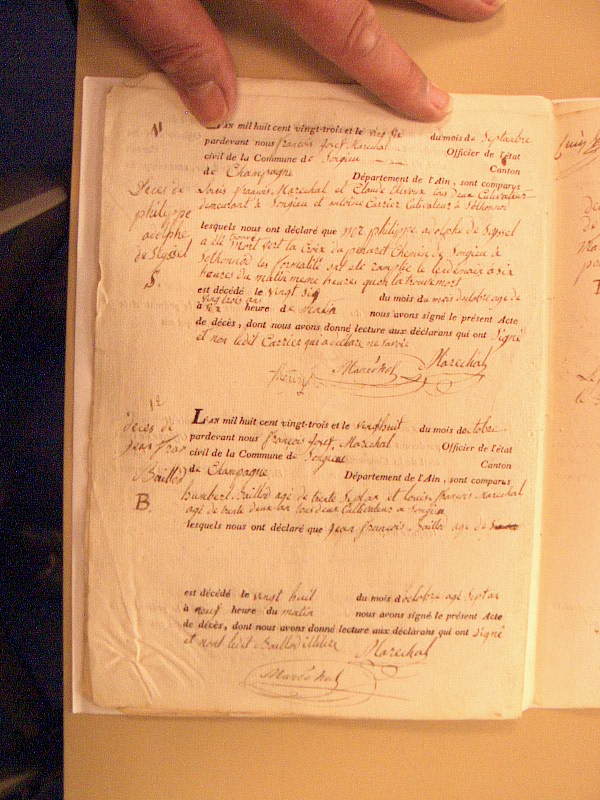 11
L'AN mil huit cent vingt-trois et le vingt du mois de Septembre
pardevant nous françois josef Marechal Officier de l'état
civil de la Commune de Songieu Canton
de Champagne Département de l'Ain, sont comparus
Décès de
philippe
adolphe
de Seyssel
S.
Louis françois Marechal et Claude tous deux Cultivateur
demeurant à Songieu et antoine Carrier Cultivateur à Sothonnod
lesquels nous ont déclaré que philippe adolphe de Seyssel
a été trouvé mort vert la Croix du Chemin de Songieu à
Sothonod les formalité ont été remplie le à six
heures du matin meme heures quon la trouvé mort
est décédé le vingt six du mois du mois doctobre age de
vingt trois ans
à six heure de matin nous avons signé le présent Acte
de décès, dont nous avons donné lecture aux déclarans qui ont Signé
et non ledit Carrier qui a déclaré ne savoir
Maréchal Marechal
12
décès de
jean fran
Baillod
B
L'AN mil huit cent vingt-trois et le vingthuit du mois doctobre
pardevant nous françois josef Marechal Officier de l'état
civil de la Commune de Songieu Canton
de Champagne Département de l'Ain, sont comparus
humbert Baillod agé de trente Septan et louis françois Marechal
agé de trente deux an tous deux Cultivateur à Songieu
lesquels nous ont déclaré que jean françois Baillod age de
est décédé le vingt huit du mois d'octobre agé Septan
à neuf heure du matin nous avons signé le présent Acte
de décès, dont nous avons donné lecture aux déclarans qui ont Signé
et nont ledit Baillod illitéré
Marechal
Maréchal